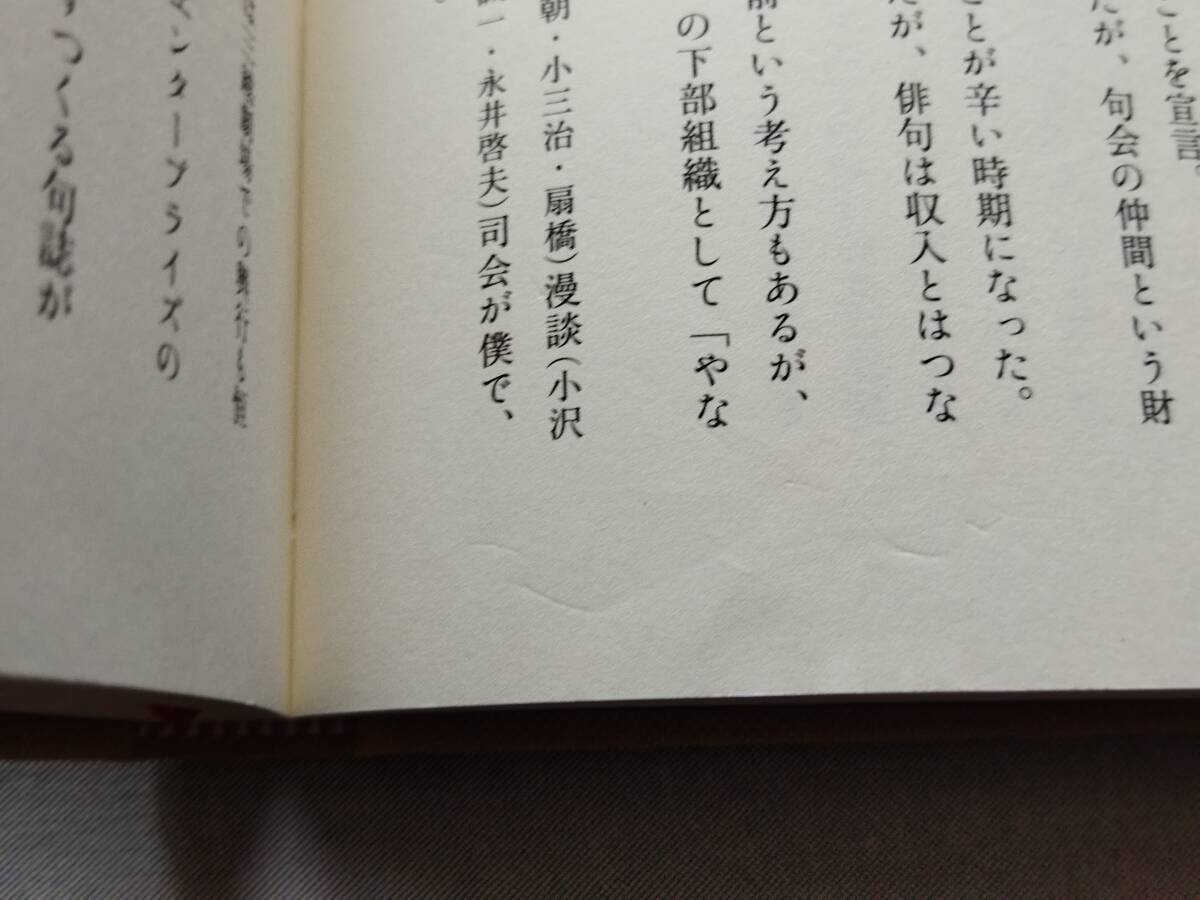 ことを宣言。
だが、句会の仲間という財
ことが辛い時期になった。
だが、俳句は収入とはつな
前という考え方もあるが、
の下部組織として「やな
朝・小三治・扇橋)漫談(小沢
一・永井啓夫)司会が僕で、
。
での
ンタープライズの
つくる句誌が